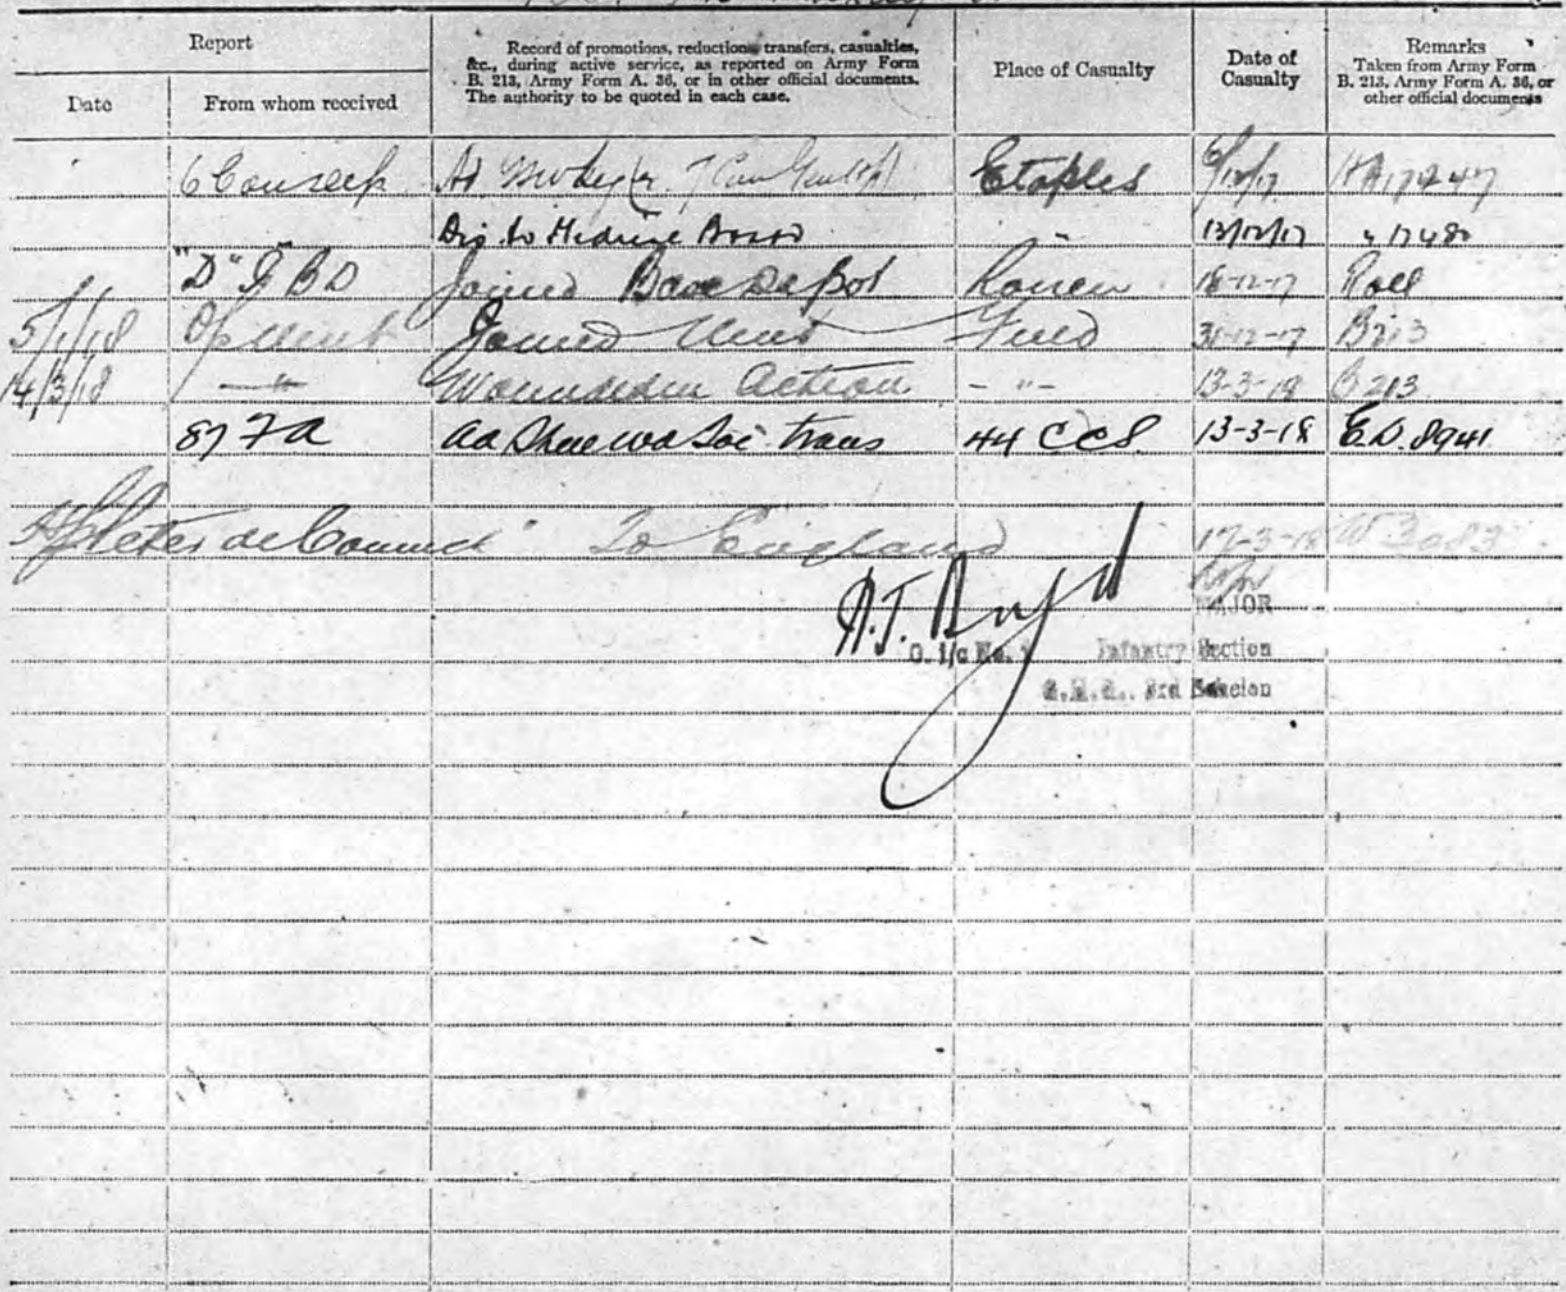 Report
Date
From whom received
Record of promotions, reductions, transfers, casualties, &c., during active service, as reported on Army Form B. 213, Army Form A. 36, or in other official documents. The authority to be quoted in each case.
Place of Casualty
Date of Casualty
Remarks
Taken from Army Form B. 213, Army Form A. 36, or other official documents
6 Etaples 6/12/17
Dis. to 13/12/17 " 17480
"D" I B D Joined Base Depot Rouen 18-12-17 Roll
5/1/18 O/c Unit Joined Unit Field 31-12-17 B213
14/3/18 -"- Wounded in Action -"- 13-3-18 B213
87 FA trans 44 CCS. 13-3-18 E.D. 8941
de To England 17-3-18 W 3083
MAJOR
O. i/c No. 1 Infantry Section
G.H.Q., 3rd Echelon